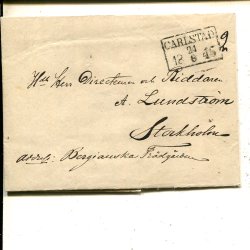 CARLSTAD
24
12 6 45
Herr Directeuren och Riddaren
A. Lundström
Stockholm
Bergianska Trädgården